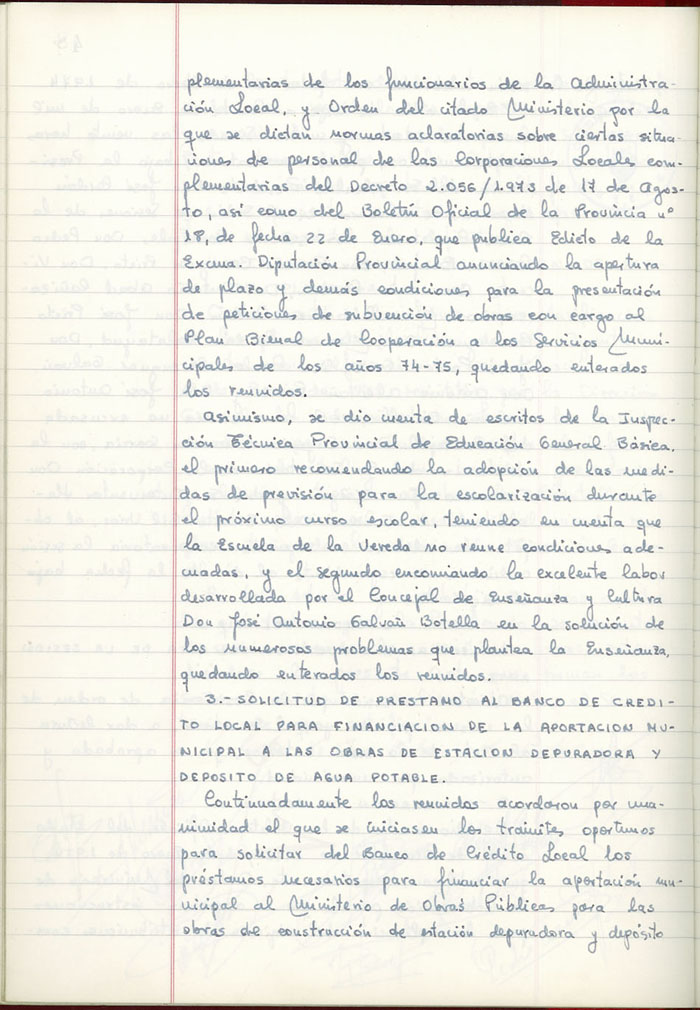 plementarias de los funcionarios de la Administra-
ción Local, y Orden del citado Ministerio por la
que se dictan normas aclaratorias sobre ciertas situa-
ciones de personal de las Corporaciones Locales com-
plementarias del Decreto 2.056/1.973 de 17 de Agos-
to, así como del Boletín Oficial de la Provincia nº
18, de fecha 22 de Enero, que publica Edicto de la
Excma. Diputación Provincial anunciando la apertura
de plazo y demás condiciones para la presentación
de peticiones de subvención de obras con cargo al
Plan Bienal de Cooperación a los Servicios Muni-
cipales de los años 74-75, quedando enterados
los reunidos.
Asimismo, se dio cuenta de escritos de la Inspec-
ción Técnica Provincial de Educación General Básica,
el primero recomendando la adopción de las medi-
das de previsión para la escolarización durante
el próximo curso escolar, teniendo en cuenta que
la Escuela de la Vereda no reune condiciones ade-
cuadas, y el segundo encomiando la excelente labor
desarrollada por el Concejal de Enseñanza y Cultura
Don José Antonio Galvañ Botella en la solución de
los numerosos problemas que plantea la Enseñanza,
quedando enterados los reunidos.
3.- SOLICITUD DE PRESTAMO AL BANCO DE CREDI-
TO LOCAL PARA FINANCIACION DE LA APORTACION MU-
NICIPAL A LAS OBRAS DE ESTACION DEPURADORA Y
DEPOSITO DE AGUA POTABLE.
Continuadamente los reunidos acordaron por una-
nimidad el que se iniciasen los trámites oportunos
para solicitar del Banco de Crédito Local los
préstamos necesarios para financiar la aportación mu-
nicipal al Ministerio de Obras Públicas para las
obras de construcción de estación depuradora y depósito